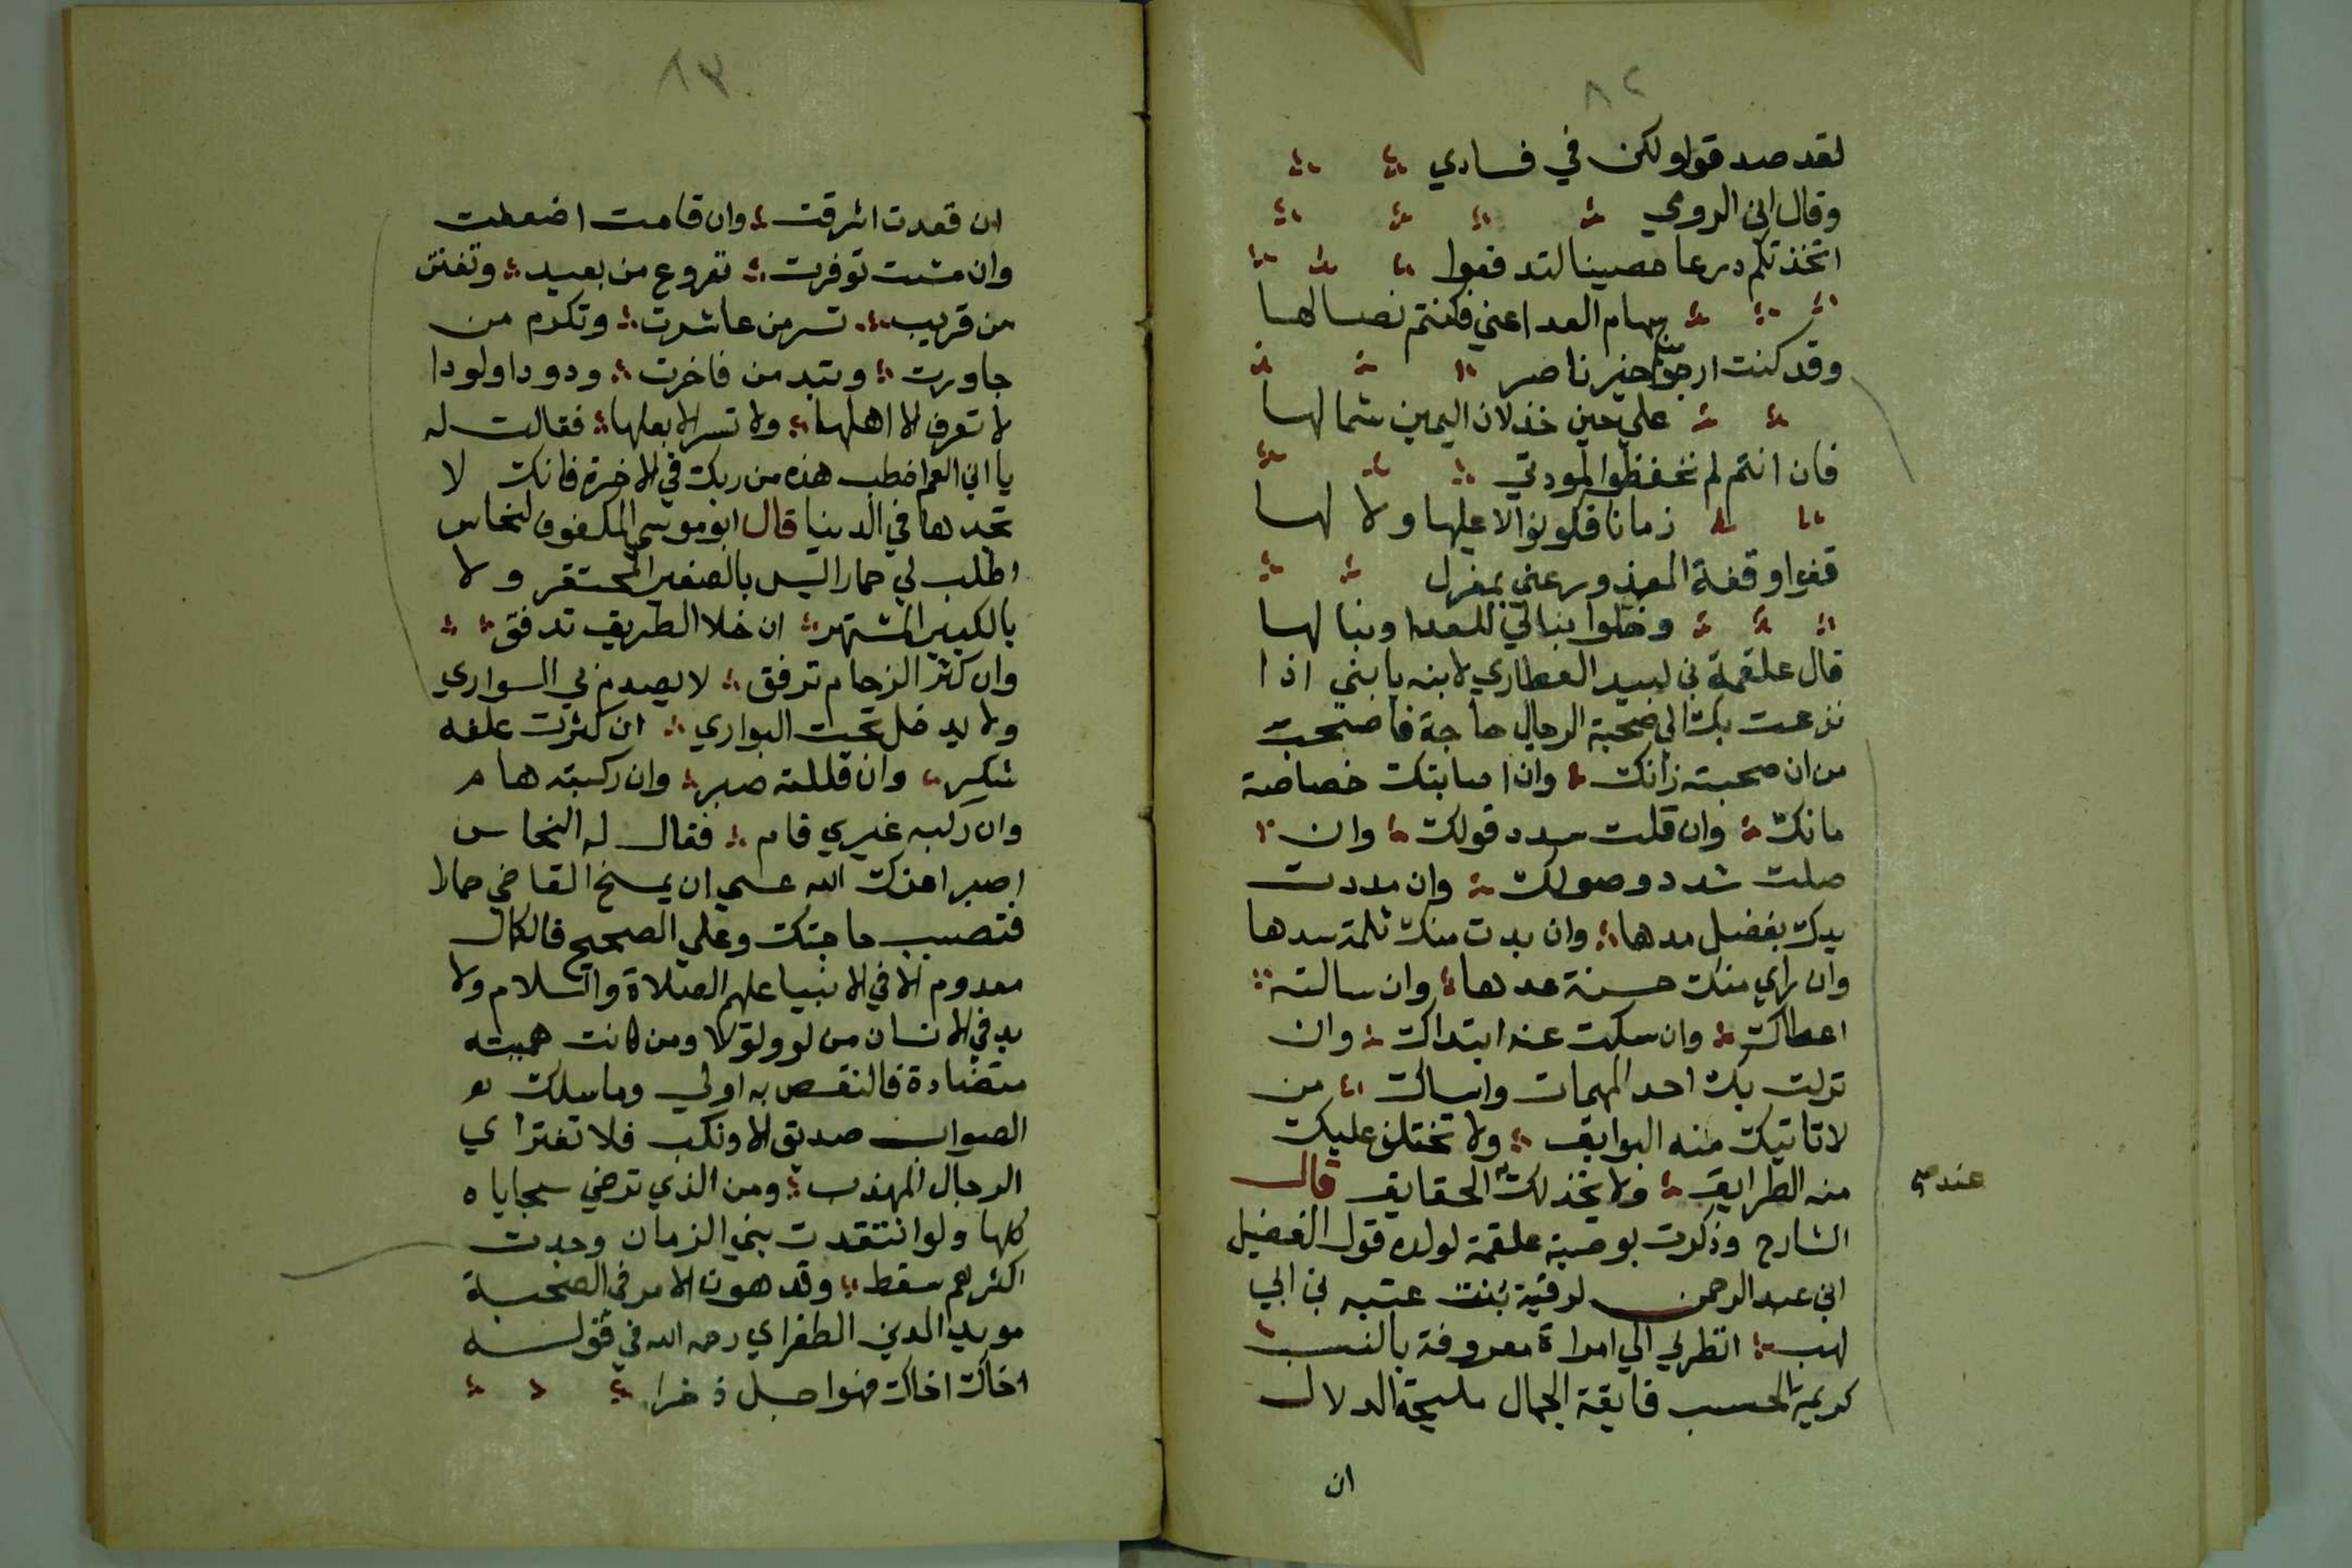 ٨٢
لقد صدقوا ولكن في فسادي
وقال ابن الرومي
اتخذتكم درعا حصينا لتدفعوا
سهام العدا عني فكنتم نصالها
وقد كنت ارجو منكم خير ناصر
علي حين خذلان اليمين شمالها
فان انتم لم تحفظوا لمودتي
زمانا فكونوا لا عليها ولا لها
قفوا وقفة المعذور عني بمعزل
وخلوا نبالي للعدا ونبالها
قال علقمة بن لبيد العطاري لابنه يا بني اذا
نزعت بك الي صحبة الرجال حاجة فاصحب
من ان صحبته زانك وان اصابتك خصاصة
مانك وان قلت سدد قولك وان
صلت شدد صولك وان مددت
يدك بفضل مدها وان بدت منك ثلمة سدها
وان راي منك حسنة عدها وان سالته
اعطاك وان سكت عنه ابتداك وان
نزلت بك احد المهمات واساك من
لا تاتيك منه البوايق ولا تختلف عليك
منه الطرايق ولا يخذلك عند الحقايق قال
الشارح وذكرت بوصية علقمة لولده قول الفضيل
ابن عبد الرحمن لرقية بنت عتبه بن ابي
لهب انظري الي امراة معروفة بالنسب
كريمة الحسب فايقة الجمال مليحة الدلال
ان
عند صح
٨٣
ان قعدت اشرقت وان قامت اضعطت
وان مشت توفرت تروع من بعيد وتفتن
من قريب تسر من عاشرت وتكرم من
جاورت وتبد من فاخرت ودودا ولودا
لا تعرف الا اهلها ولا تسر الا بعلها فقالت له
يا ابن العم اخطب هذه من ربك في الاخرة فانك لا
تجدها في الدنيا قال ابو موسي المكفوف لنخاس
اطلب لي حمارا ليس بالصغير المحتقر ولا
بالكبير المشتهر ان خلا الطريق تدفق
وان كثر الزحام ترفق لا يصدم بي السواري
ولا يدخل تحت البواري ان كثرت علفه
شكر وان قللته صبر وان ركبته هام
وان ركبه غيري قام فقال له النخاس
اصبر اعزك الله عسي ان يمسخ القاضي حمارا
فتصيب حاجتك وعلي الصحيح فالكمال
معدوم الا في الانبيا عليهم الصلاة والسلام ولا
بد في الانسان من لو ولولا ومن كانت همته
متضادة فالنقص به اولي وما سلك
الصواب صديق الا ونكب فلا تغتر اي
الرجال المهذب ومن الذي ترضي سجاياه
كلها ولو انتقدت بني الزمان وجدت
اكثرهم سقط وقد هون الامر في الصحبة
مويد الدين الطغراي رحمه الله في قوله
اخاك اخاك فهو اجل ذخرا